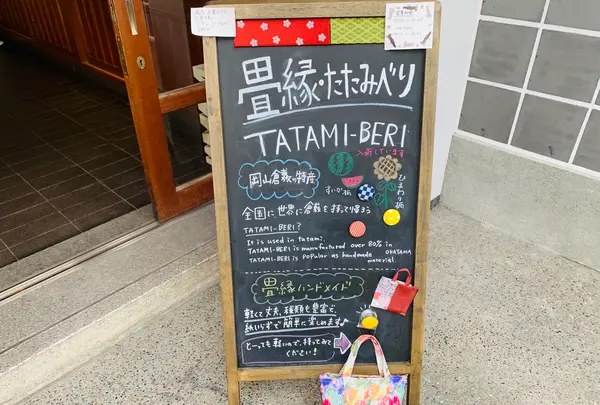 畳縁・たたみべり
TATAMI-BERI
入荷しています
岡山倉敷の特産
すいか柄
ひまわり柄
全国に世界に倉敷を持って帰ろう
TATAMI-BERI?
It is used in tatami.
TATAMI-BERI is manufactured over 80% in OKAYAMA
TATAMI-BERI is popular as handmade material
畳縁ハンドメイド
軽くて丈夫、種類も豊富で、
縫いらずで簡単に楽しめます♪
とーっても軽いので、持ってみて
ください!